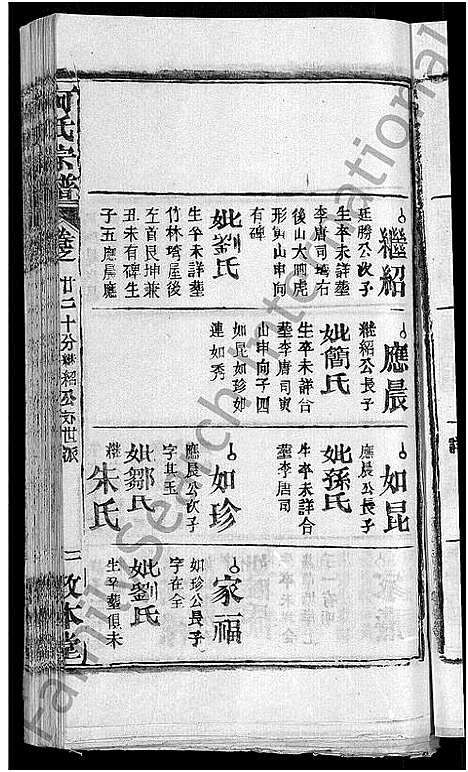 繼紹
延勝公次子
生卒未詳塟
李唐司塆右
後山大四虎
形寅山申向
有碑
妣劉氏
生卒未詳塟
竹林塆屋後
左首艮坤兼
丑未有碑生
子五應晨應
應晨
繼紹公長子
妣簡氏
生卒未詳合
塟李唐司寅
山申向子四
如昆如珍如
連如秀
如昆
應晨公長子
妣孫氏
生卒未詳合
塟李唐司
如珍
應晨公次子
字其玉
妣鄒氏
繼
朱氏
家福
如珍公長子
字在全
妣劉氏
生卒塟俱未
何氏宗譜
卷之
廿二
十分繼紹公房世派
二
敦本堂
FamilySearch International